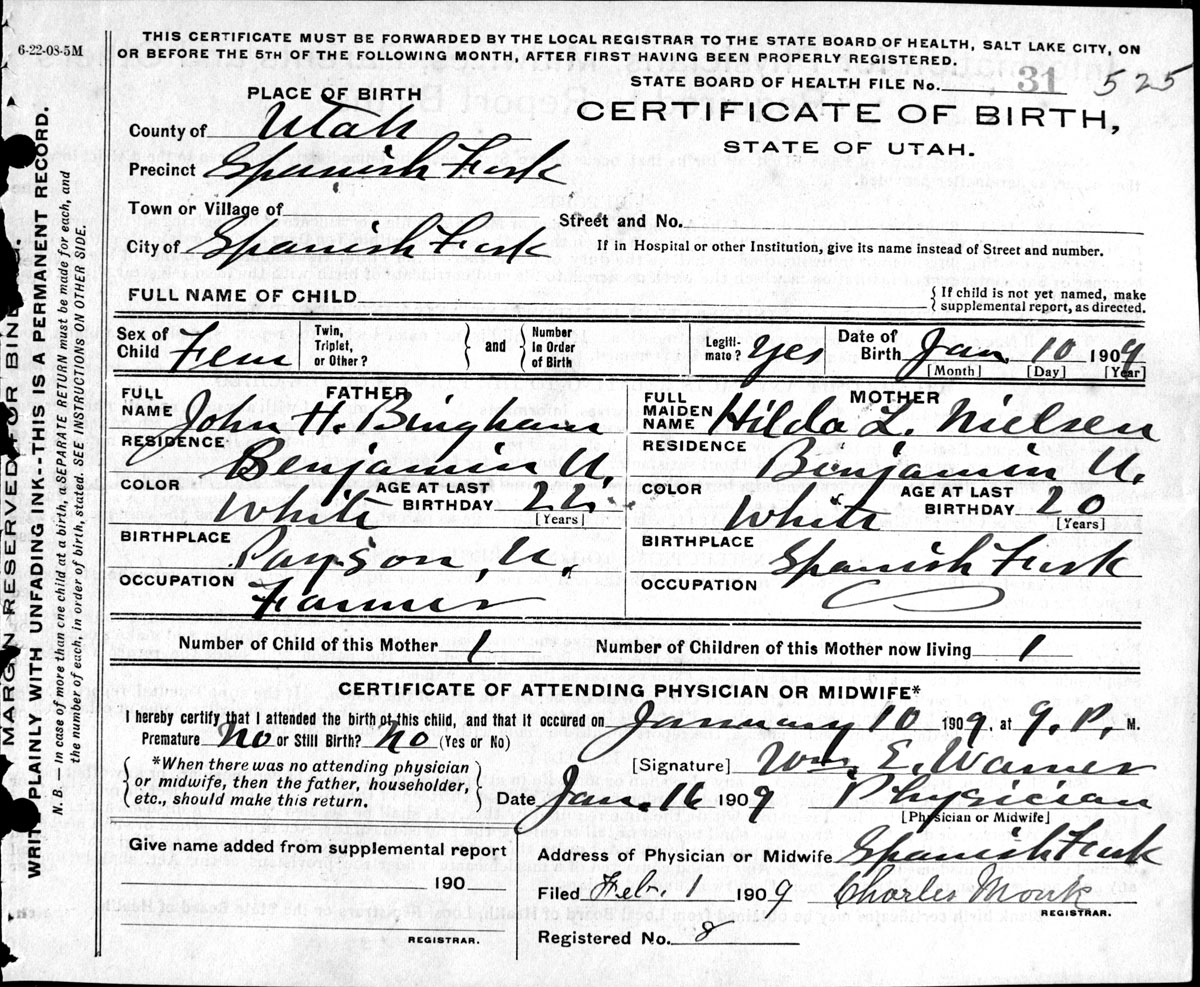 6-22-08-5M
THIS CERTIFICATE MUST BE FORWARDED BY THE LOCAL REGISTRAR TO THE STATE BOARD OF HEALTH, SALT LAKE CITY, ON
OR BEFORE THE 5TH OF THE FOLLOWING MONTH, AFTER FIRST HAVING BEEN PROPERLY REGISTERED.
STATE BOARD OF HEALTH FILE No. 31 525
PLACE OF BIRTH
CERTIFICATE OF BIRTH,
STATE OF UTAH.
County of Utah
Precinct Spanish Fork
Town or Village of
Street and No.
City of Spanish Fork
If in Hospital or other Institution, give its name instead of Street and number.
FULL NAME OF CHILD
If child is not yet named, make
supplemental report, as directed.
Sex of Child Fem
Twin, Triplet, or Other? and Number in Order of Birth
Legiti- mate? Yes
Date of Birth Jan. 10 1909
[Month] [Day] [Year]
FATHER
FULL NAME John H. Bingham
RESIDENCE Benjamin U.
COLOR White AGE AT LAST BIRTHDAY 22
[Years]
BIRTHPLACE Payson, U.
OCCUPATION Farmer
MOTHER
FULL MAIDEN NAME Hilda L. Nielsen
RESIDENCE Benjamin U.
COLOR White AGE AT LAST BIRTHDAY 20
[Years]
BIRTHPLACE Spanish Fork
OCCUPATION
Number of Child of this Mother 1 Number of Children of this Mother now living 1
CERTIFICATE OF ATTENDING PHYSICIAN OR MIDWIFE*
I hereby certify that I attended the birth of this child, and that it occured on January 10 1909, at 9. P. M.
Premature No or Still Birth? No (Yes or No)
*When there was no attending physician
or midwife, then the father, householder,
etc., should make this return.
[Signature] Wm. E. Warner
Date Jan. 16 1909 Physician
[Physician or Midwife]
Give name added from supplemental report
190
REGISTRAR.
Address of Physician or Midwife Spanish Fork
Filed Feb. 1 1909 Charles Monk
REGISTRAR.
Registered No. 8
MARGIN RESERVED FOR BIND
WRITE PLAINLY WITH UNFADING INK--THIS IS A PERMANENT RECORD.
N. B.—In case of more than one child at a birth, a SEPARATE RETURN must be made for each, and
the number of each, in order of birth, stated. SEE INSTRUCTIONS ON OTHER SIDE.